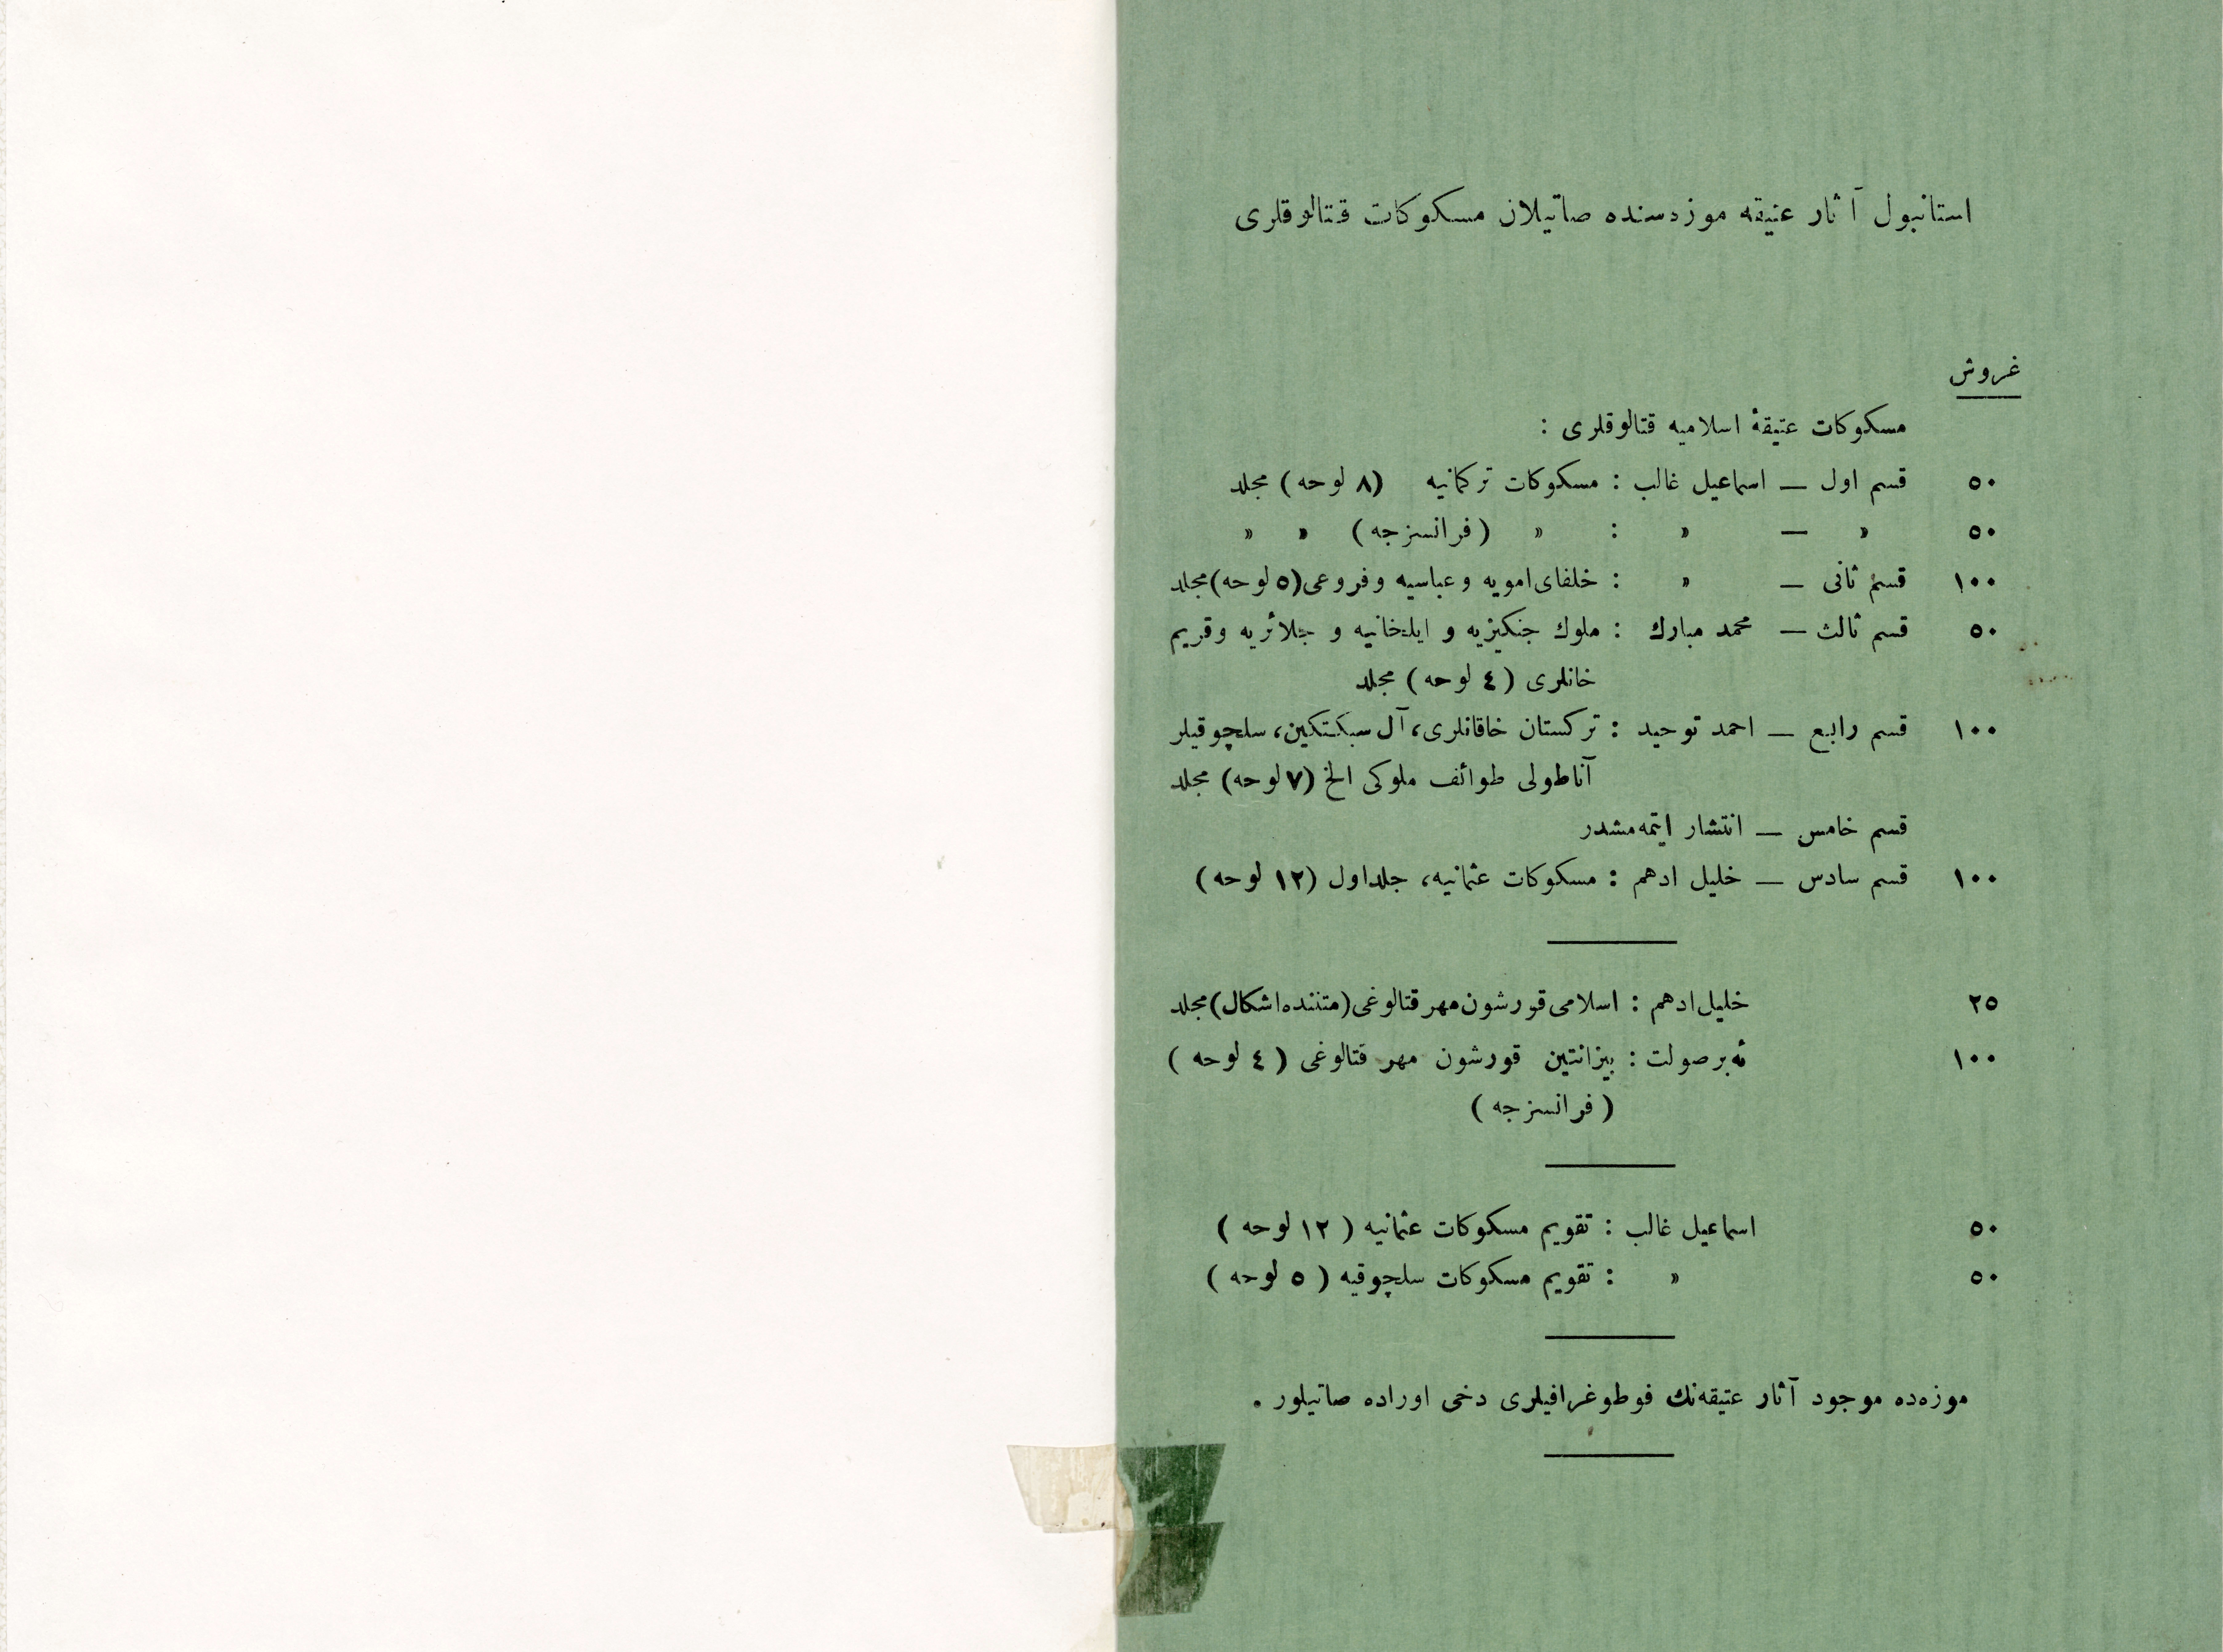 استانبول آثار عتیقه موزه‌سنده صاتیلان مسکوکات قتالوقلری
غروش
مسکوکات عتیقهٔ اسلامیه قتالوقلری :
٥٠ قسم اول — اسماعیل غالب : مسکوکات ترکمانیه (٨ لوحه) مجلد
٥٠ » — » : » (فرانسزجه) » »
١٠٠ قسم ثانی — » : خلفای امویه و عباسیه وفروعی (٥ لوحه) مجلد
٥٠ قسم ثالث — محمد مبارك : ملوك جنکیزیه و ایلخانیه و جلائریه وقریم
خانلری (٤ لوحه) مجلد
١٠٠ قسم رابع — احمد توحید : ترکستان خاقانلری، آل سبکتکین، سلچوقیلر
آناطولی طوائف ملوکی الخ (٧ لوحه) مجلد
قسم خامس — انتشار ایتمه‌مشدر
١٠٠ قسم سادس — خلیل ادهم : مسکوکات عثمانیه، جلد اول (١٢ لوحه)
٢٥ خلیل ادهم : اسلامی قورشون مهر قتالوغی (متننده اشکال) مجلد
١٠٠ ئه‌برصولت : بیزانتین قورشون مهر قتالوغی (٤ لوحه)
(فرانسزجه)
٥٠ اسماعیل غالب : تقویم مسکوکات عثمانیه (١٢ لوحه)
٥٠ » : تقویم مسکوکات سلچوقیه (٥ لوحه)
موزه‌ده موجود آثار عتیقه‌نك فوطوغرافیلری دخی اوراده صاتیلور .